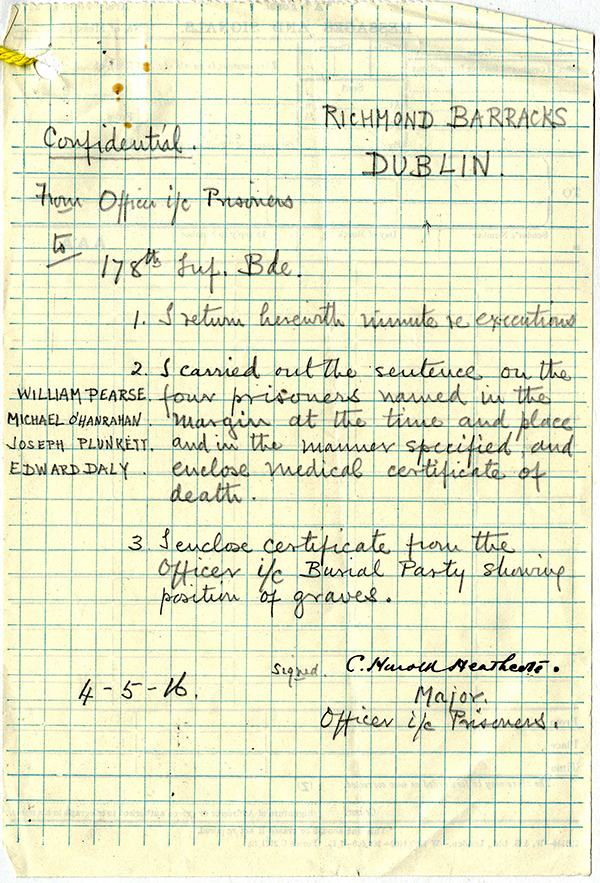 RICHMOND BARRACKS
DUBLIN.
Confidential.
From Officer i/c Prisoners
to
178th Inf. Bde.
1. I return herewith minute re executions
2. I carried out the sentence on the
WILLIAM PEARSE. four prisoners named in the
MICHAEL O'HANRAHAN. margin at the time and place
JOSEPH PLUNKETT. and in the manner specified, and
EDWARD DALY. enclose medical certificate of
death.
3 I enclose certificate from the
Officer i/c Burial Party showing
position of graves.
Signed. C. Harold Heathcote.
4-5-16.
Major.
Officer i/c Prisoners.